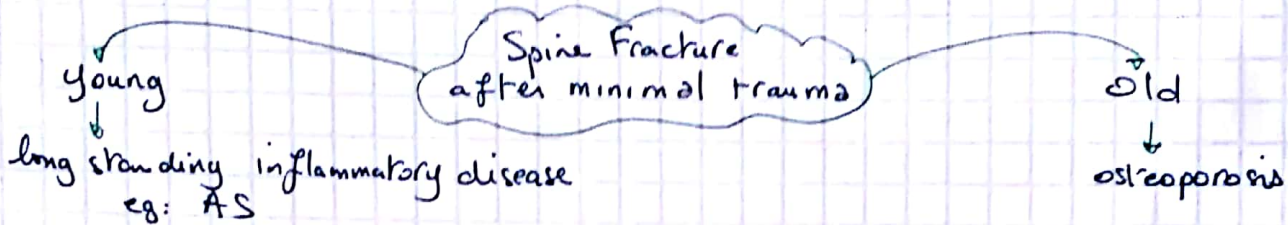 Spine Fracture
after minimal trauma
young
long standing inflammatory disease
eg: AS
old
osteoporosis